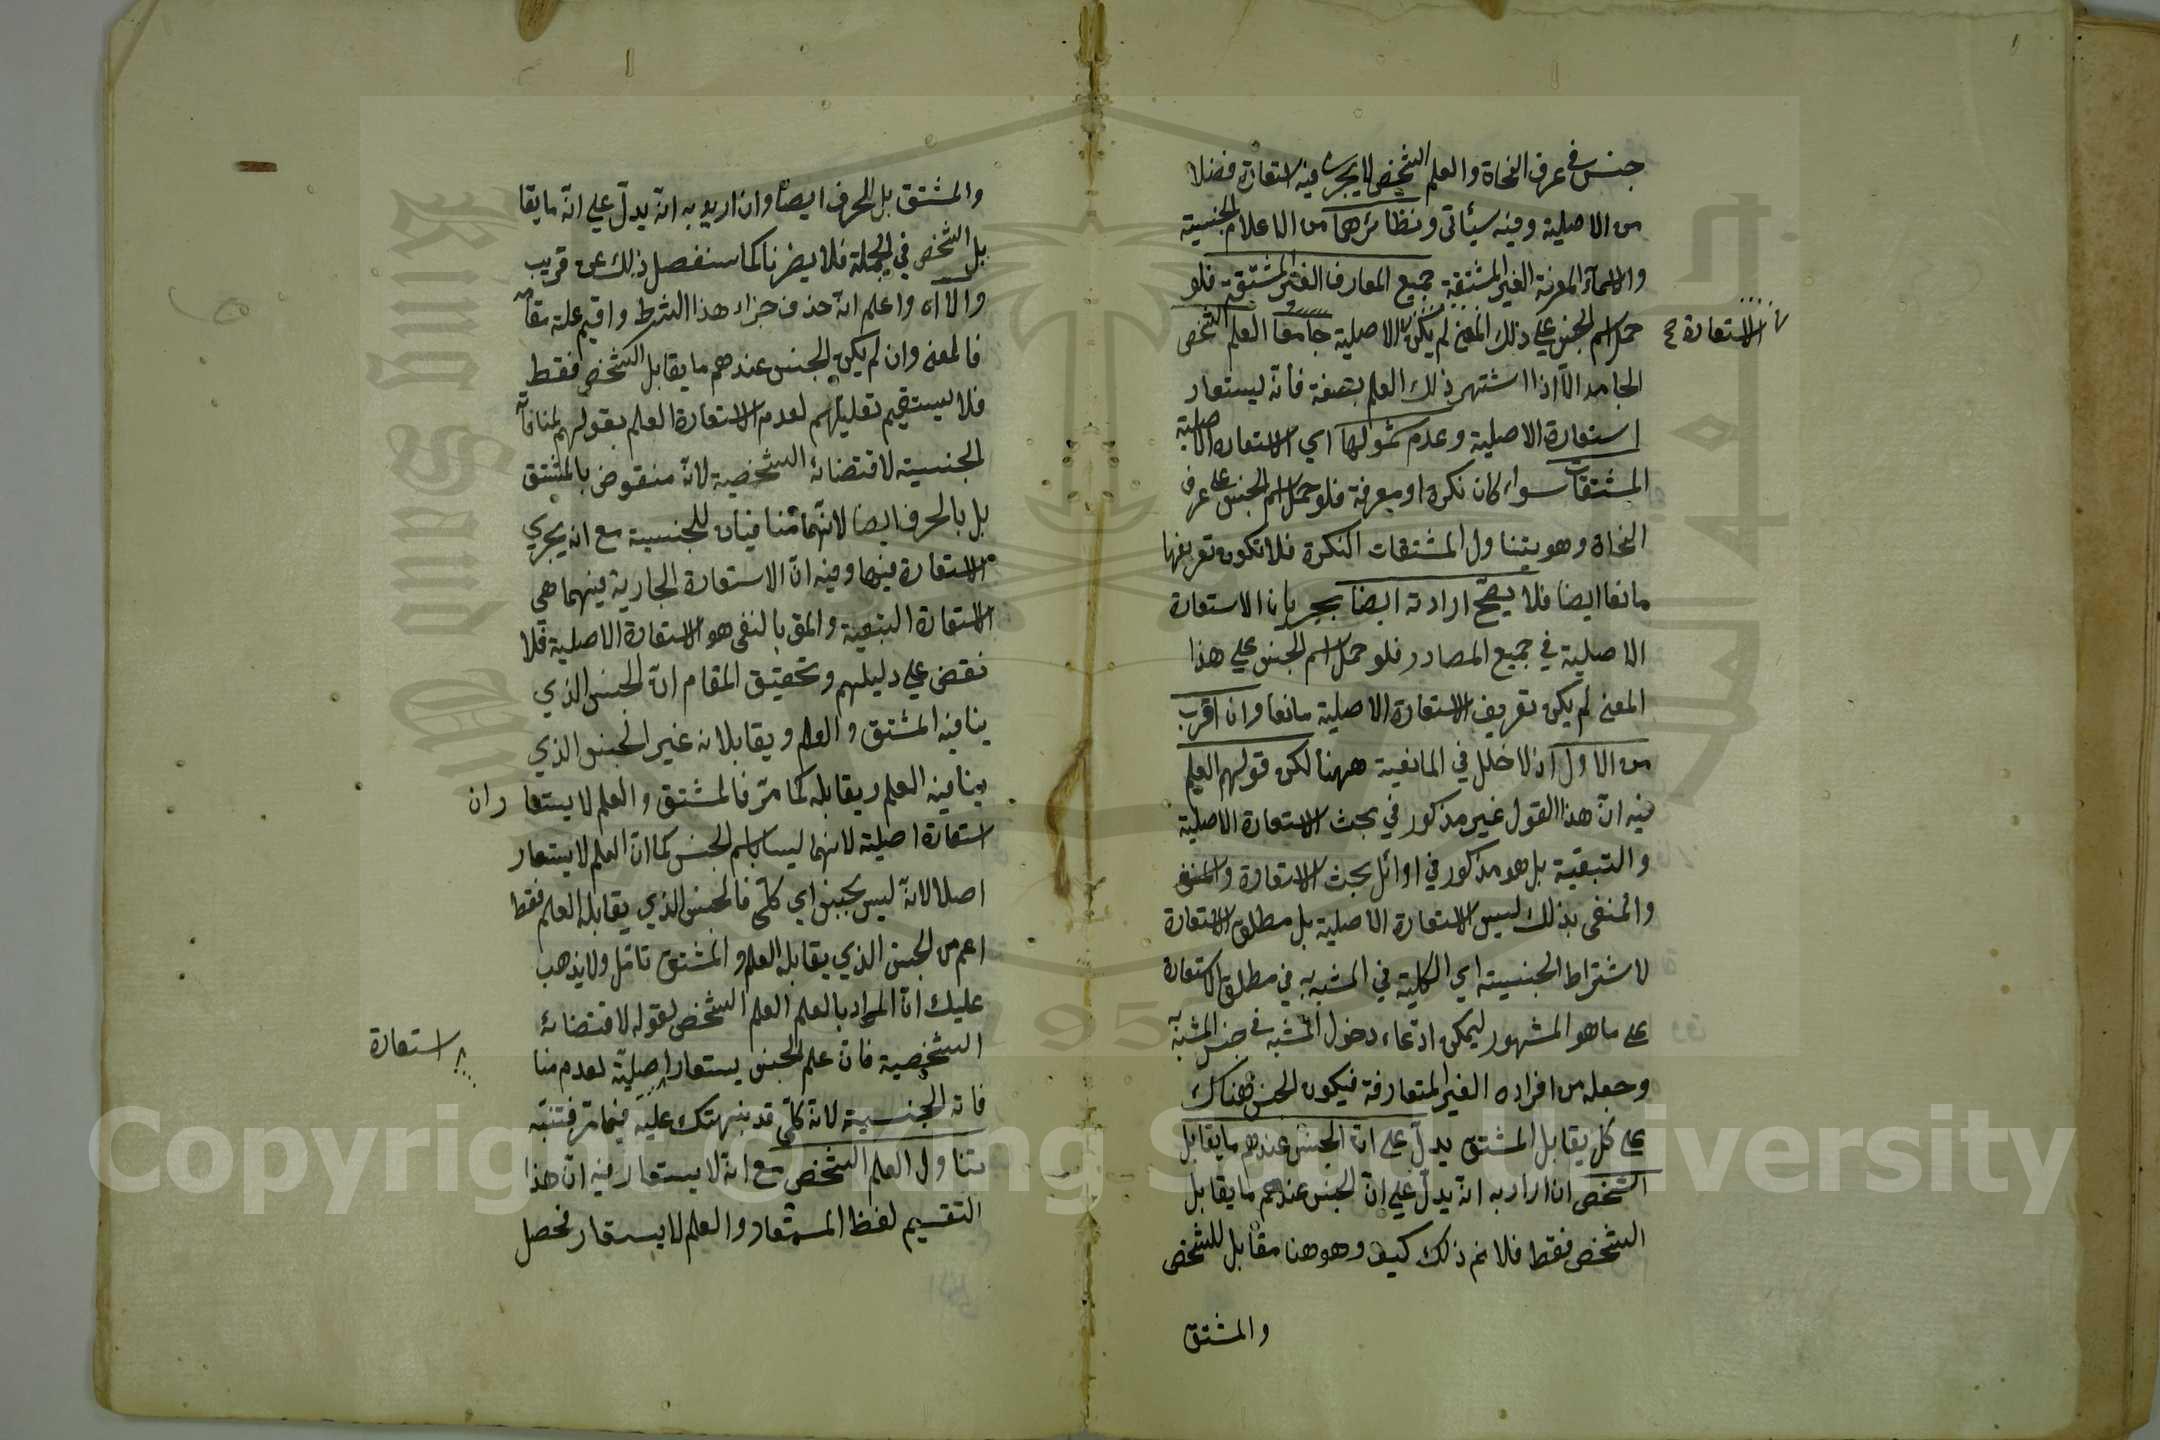 جنس في عرف النحاة والعلم الشخص لا يجري فيه استعارة فضلا
من الاصلية وفيه سيأتى ونظائرهما من الاعلام الجنسية
والاسماء المعرفة الغير المشتقة جميع المعارف الغير المشتقة فلو
حمل اسم الجنس على ذلك المعنى لم يكن الاصلية جامعا العلم الشخص
الاستعارة
الجامد الا اذا اشتهر ذلك العلم بصفة فأنه ليستعار
استعارة الاصلية وعدم شمولها اي الاستعارة الاصلية
المشتقات سواء كان نكرة او معرفة فلو حمل اسم الجنس على عرف
النحاة وهو يتناول المشتقات النكرة فلا تكون تعريفها
مانعا ايضا فلا يصح ارادته ايضا بجريان الاستعارة
الاصلية في جميع المصادر فلو حمل اسم الجنس على هذا
المعنى لم يكن تعريف الاستعارة الاصلية مانعا وان اقرب
من الاول اذ لا خلل في المانعية ههنا لكن قولهم العلم
فيه ان هذا القول غير مذكور في بحث الاستعارة الاصلية
والتبعية بل هو مذكور في اوائل بحث الاستعارة
والمنفى بذلك ليس الاستعارة الاصلية بل مطلق الاستعارة
لاشتراط الجنسية اي الكلية في المشبه به في مطلق الاستعارة
على ما هو المشهور ليمكن ادعاء دخول المشبه في جنس المشبه به
وجعله من افراده الغير المتعارفة فيكون الجنس هناك
على كل يقابل المشتق يدل على ان الجنس عندهم ما يقابل
الشخص ان اراد به انه يدل على ان الجنس عندهم ما يقابل
الشخص فقط فلا نم ذلك كيف وهو هنا مقابل للشخص
والمشتق
والمشتق بل الحرف ايضا وان اريد به انه يدل على انه ما يقا
بل الشخص في الجملة فلا يضرنا كما سنفصل ذلك عن قريب
والا اه واعلم انه حذف جزاء هذا الشرط واقيم علته مقامه
فالمعنى وان لم يكن الجنس عندهم ما يقابل الشخص فقط
فلا يستقيم تعليلهم لعدم الاستعارة العلم بقولهم لمنافاته
الجنسية لاقتضائه الشخصية لانه منقوض بالمشتق
بل بالحرف ايضا لانهما منافيان للجنسية مع انه يجري
الاستعارة فيهما وفيه ان الاستعارة الجارية فيهما هي
الاستعارة التبعية والمق بالنفى هو الاستعارة الاصلية فلا
نقض على دليلهم وتحقيق المقام ان الجنس الذي
ينافيه المشتق والعلم ويقابلانه غير الجنس الذي
ينافيه العلم ويقابله كما مر فالمشتق والعلم لا يستعا ران
استعارة اصلية لانهما ليسا باسم الجنس كما ان العلم لا يستعار
اصلا لانه ليس بجنس اي كلى فالجنس الذي يقابله العلم فقط
اعم من الجنس الذي يقابله العلم والمشتق تامل ولا يذهب
عليك ان المراد بالعلم العلم الشخص لقوله لاقتضائه
الشخصية فان علم الجنس يستعار اصلية لعدم منا
استعارة
فاته الجنسية لانه كلى قد بنهتك عليه فيما مر فتنبه
تناول العلم الشخص مع انه لا يستعار فيه ان هذا
التقسيم لفظ المستعار والعلم لا يستعار فحصل